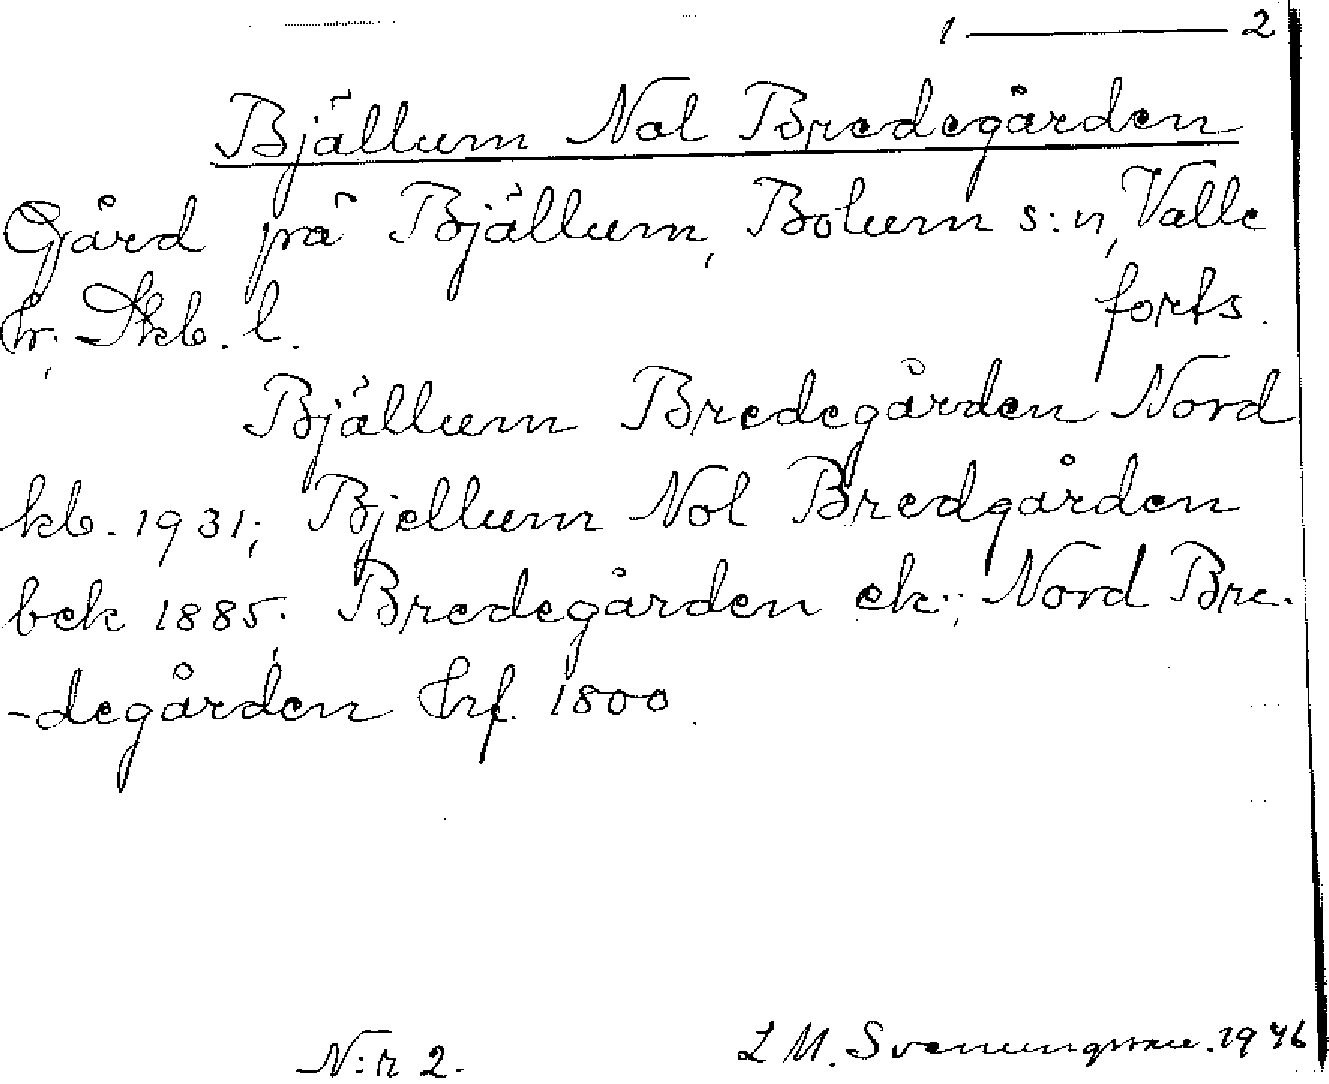 1 ——— 2
Bjällum Nol Bredegården
Gård på Bjällum, Bolum s:n, Valle
hr, Skb. l.
forts.
Bjällum Bredegården Nord
kb. 1931; Bjellum Nol Bredgården
bek 1885; Bredegården ek.; Nord Bre-
-degården hrf. 1800.
N:r 2.
L M. Svenungsson. 1946